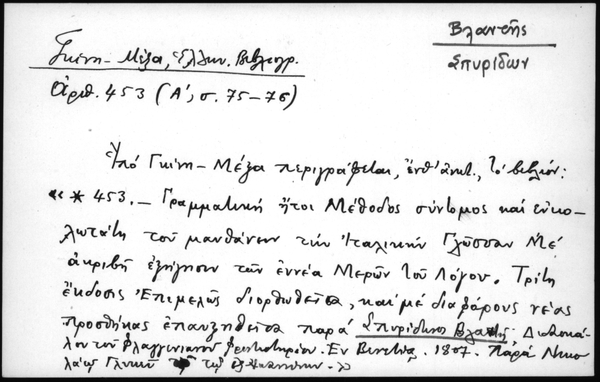 Βλαντῆς
Σπυρίδων
Γκίνη - Μέξα, Ἑλλην. Βιβλιογρ.
ἀριθ. 453 (Α', σ. 75-76)
Ὑπό Γκίνη - Μέξα περιγράφεται, ἐνθ' ἀνωτ., τό βιβλίον:
«* 453. — Γραμματική ἤτοι Μέθοδος σύντομος καί εὐκο-
λωτάτη τοῦ μανθάνειν τήν Ἰταλικήν Γλῶσσαν Μέ
ἀκριβῆ ἐξήγησιν τῶν ἐννέα Μερῶν τοῦ Λόγου. Τρίτη
ἔκδοσις Ἐπιμελῶς διορθωθεῖσα, καί μέ διαφόρους νέας
προσθήκας ἐπαυξηθεῖσα παρά Σπυρίδωνος Βλαντῆ, Διδασκά-
λου τοῦ Φλαγγινιανοῦ Φροντιστηρίου. Ἐν Βενετίᾳ. 1807. Παρά Νικο-
λάῳ Γλυκεῖ τῷ ἐξ Ἰωαννίνων. -»